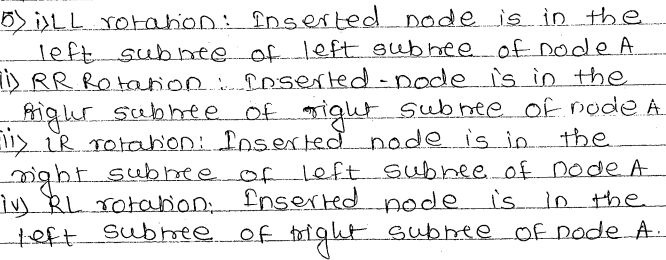 5) i) LL rotation: Inserted node is in the
left subtree of left subtree of node A
ii) RR Rotation: Inserted-node is in the
Right subtree of right subtree of node A
iii) LR rotation: Inserted node is in the
right subtree of left subtree of node A
iv) RL rotation: Inserted node is in the
left subtree of right subtree of node A.